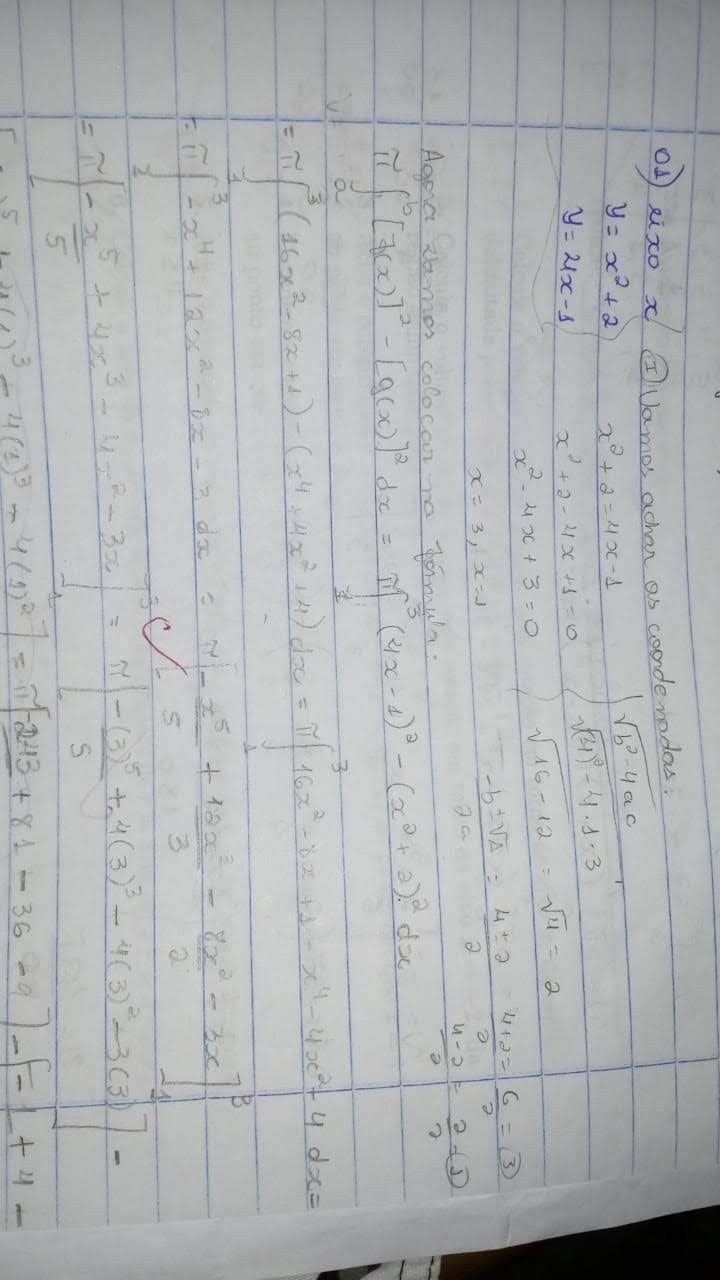 01) eixo x   I) Vamos achar as coordenadas:
y = x² + 2   x² + 2 = 4x - 1   √b² - 4ac
y = 4x - 1   x² + 2 - 4x + 1 = 0   √(4)² - 4 · 1 · 3
x² - 4x + 3 = 0   √16 - 12 = √4 = 2
x = 3, x = 1   -b ± √Δ / 2a = 4 ± 2 / 2 = 4 + 2 / 2 = 6 / 2 = 3
4 - 2 / 2 = 2 / 2 = 1
Agora vamos colocar na fórmula:
π ∫ₐᵇ [f(x)]² - [g(x)]² dx = π ∫₁³ (4x - 1)² - (x² + 2)² dx
= π ∫₁³ (16x² - 8x + 1) - (x⁴ + 4x² + 4) dx = π ∫₁³ 16x² - 8x + 1 - x⁴ - 4x² + 4 dx =
= π ∫₁³ -x⁴ + 12x² - 8x - 3 dx = π [-x⁵/5 + 12x³/3 - 8x²/2 - 3x]₁³
= π [-x⁵/5 + 4x³ - 4x² - 3x]₁³ = π [-(3)⁵/5 + 4(3)³ - 4(3)² - 3(3)] -
⁵ + 4(1)³ - 4(1)²] = π [-243 + 81 - 36 - 9] - [-1 + 4 -